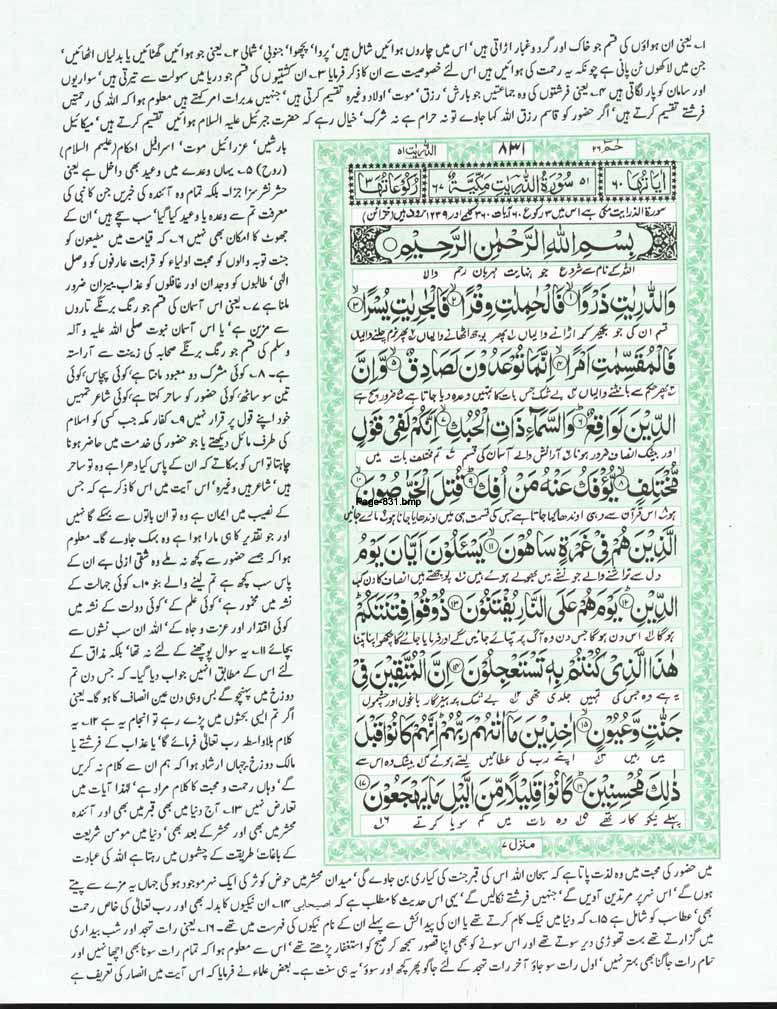 ۱۔ یعنی ان ہواؤں کی قسم جو خاک اور گرد و غبار اڑاتی ہیں' اس میں چاروں ہوائیں شامل ہیں' پروا' پچھوا' جنوبی' شمالی ۲۔ یعنی جو ہوائیں گھٹائیں یا بدلیاں اٹھائیں'
جن میں لاکھوں ٹن پانی ہے چونکہ یہ رحمت کی ہوائیں ہیں اس لئے خصوصیت سے ان کا ذکر فرمایا ۳۔ ان کشتیوں کی قسم جو دریا میں سہولت سے تیرتی ہیں' سواریوں
اور سامان کو پار لگاتی ہیں ۴۔ یعنی فرشتوں کی وہ جماعتیں جو بارش' رزق' موت' اولاد وغیرہ تقسیم کرتی ہیں' جنہیں مدبرات امر کہتے ہیں معلوم ہوا کہ اللہ کی رحمتیں
فرشتے تقسیم کرتے ہیں' اگر حضور کو قاسم رزق اللہ کہا جاوے تو نہ حرام ہے نہ شرک' خیال رہے کہ حضرت جبرئیل علیہ السلام ہوائیں تقسیم کرتے ہیں' میکائیل
بارشیں' عزرائیل موت' اسرافیل احکام (علیہم السلام)
(روح) ۵۔ یہاں وعدے میں وعید بھی داخل ہے یعنی
حشر نشر سزا جزا۔ بلکہ تمام وہ آئندہ کی خبریں جن کا نبی کی
معرفت تم سے وعدہ یا وعید کیا گیا' سب سچے ہیں' ان کے
جھوٹ کا امکان بھی نہیں ۶۔ کہ قیامت میں مطیعوں کو
جنت توبہ والوں کو محبت اولیاء کو قرابت عارفوں کو وصل
الٰہی' طالبوں کو وجدان اور غافلوں کو عذاب میزان ضرور
ملنا ہے ۷۔ یعنی اس آسمان کی قسم جو رنگ برنگے تاروں
سے مزین ہے' یا اس آسمان نبوت صلی اللہ علیہ و آلہ
وسلم کی قسم جو رنگ برنگے صحابہ کی زینت سے آراستہ
ہے۔ ۸۔ کوئی مشرک دو معبود مانتا ہے' کوئی پچاس' کوئی
تین سو ساٹھ' کوئی حضور کو ساحر کہتا ہے' کوئی شاعر تمہیں
خود اپنے قول پر قرار نہیں ۹۔ کفار مکہ جب کسی کو اسلام
کی طرف مائل دیکھتے یا جو حضور کی خدمت میں حاضر ہونا
چاہتا تو اس کو بہکاتے کہ ان کے پاس کیا دھرا ہے وہ تو ساحر
ہیں' شاعر ہیں وغیرہ' اس آیت میں اس کا ذکر ہے کہ جس
کے نصیب میں ایمان ہے وہ تو ان باتوں سے بہکے گا نہیں
اور جو تقدیر کا ہی مارا ہوا ہے وہ بہک جاوے گا۔ معلوم
ہوا کہ جسے حضور سے کچھ نہ ملے وہ شقی ازلی ہے ان کے
پاس سب کچھ ہے تم لینے والے بنو ۱۰۔ کوئی جہالت کے
نشہ میں مخمور ہے' کوئی علم کے' کوئی دولت کے نشہ میں
کوئی اقتدار اور عزت و جاہ کے' اللہ ان سب نشوں سے
بچائے ۱۱۔ یہ سوال پوچھنے کے لئے نہ تھا' بلکہ مذاق کے
لئے اس کے مطابق انہیں جواب دیا گیا۔ کہ جس دن تم
دوزخ میں پہنچو گے بس وہی دن عین انصاف کا ہو گا۔ یعنی
اگر تم ایسی بحثوں میں پڑے رہے تو انجام یہ ہے ۱۲۔ یہ
کلام بلاواسطہ رب تعالٰی فرمائے گا' یا عذاب کے فرشتے یا
مالک دوزخ جہاں ارشاد ہوا کہ ہم ان سے کلام نہ کریں
گے' وہاں رحمت و محبت کا کلام مراد ہے' لہٰذا آیات میں
تعارض نہیں ۱۳۔ آج دنیا میں بھی قبر میں بھی اور آئندہ
محشر میں بھی اور محشر کے بعد بھی' دنیا میں مومن شریعت
کے باغات' طریقت کے چشموں میں رہتا ہے اللہ کی عبادت
حٰمٓ ۲۶ ۸۳۱ الذّٰریٰت ۵۱
اٰیَاتُهَا ۶۰ ۵۱ سُوْرَةُ الذّٰرِیٰتِ مَکِّیَّةٌ ۶۷ رُکُوْعَاتُهَا ۳
سورۃ الذاریات مکی ہے اس میں ۳ رکوع ۶۰ آیات ۳۶۰ کلمے اور ۱۲۳۹ حروف ہیں (خزائن)
بِسْمِ اللّٰهِ الرَّحْمٰنِ الرَّحِیْمِ
اللہ کے نام سے شروع جو نہایت مہربان رحم والا
وَالذّٰرِیٰتِ ذَرْوًا ۱ فَالْحٰمِلٰتِ وِقْرًا ۲ فَالْجٰرِیٰتِ یُسْرًا ۳
قسم ان کی جو بکھیر کر اڑانے والیاں پھر بوجھ اٹھانے والیاں پھر نرم چلنے والیاں
فَالْمُقَسِّمٰتِ اَمْرًا ۴ اِنَّمَا تُوْعَدُوْنَ لَصَادِقٌ ۵ وَّاِنَّ
پھر حکم سے بانٹنے والیاں بے شک جس بات کا تمہیں وعدہ دیا جاتا ہے ضرور سچ ہے
الدِّیْنَ لَوَاقِعٌ ۶ وَالسَّمَآءِ ذَاتِ الْحُبُكِ ۷ اِنَّكُمْ لَفِیْ قَوْلٍ
اور بیشک انصاف ضرور ہونا آرائش والے آسمان کی قسم تم مختلف بات میں
مُّخْتَلِفٍ ۸ یُّؤْفَكُ عَنْهُ مَنْ اُفِكَ ۹ قُتِلَ الْخَرّٰصُوْنَ ۱۰
Page-831.bmp
ہو اس قرآن سے وہی اوندھا کیا جاتا ہے جس کی قسمت ہی میں اوندھایا جانا ہو مارے جائیں
الَّذِیْنَ هُمْ فِیْ غَمْرَةٍ سَاهُوْنَ ۱۱ یَسْـَٔلُوْنَ اَیَّانَ یَوْمُ
دل سے تراشنے والے جو نشے میں بھولے ہوئے ہیں پوچھتے ہیں انصاف کا دن کب
الدِّیْنِ ۱۲ یَوْمَ هُمْ عَلَى النَّارِ یُفْتَنُوْنَ ۱۳ ذُوْقُوْا فِتْنَتَكُمْ
ہو گا اس دن ہو گا جس دن وہ آگ پر تپائے جائیں گے اور فرمایا جائے گا چکھو اپنا تپنا
هٰذَا الَّذِیْ كُنْتُمْ بِهٖ تَسْتَعْجِلُوْنَ ۱۴ اِنَّ الْمُتَّقِیْنَ فِیْ
یہ ہے وہ جس کی تمہیں جلدی تھی بے شک پرہیزگار باغوں اور چشموں
جَنّٰتٍ وَّعُیُوْنٍ ۱۵ اٰخِذِیْنَ مَاۤ اٰتٰهُمْ رَبُّهُمْ اِنَّهُمْ كَانُوْا قَبْلَ
میں ہیں اپنے رب کی عطائیں لیتے ہوئے بیشک وہ اس سے
ذٰلِكَ مُحْسِنِیْنَ ۱۶ كَانُوْا قَلِیْلًا مِّنَ الَّیْلِ مَا یَهْجَعُوْنَ ۱۷
پہلے نیکو کار تھے وہ رات میں کم سویا کرتے
منزل ۷
میں حضور کی محبت میں وہ لذت پاتا ہے کہ سبحان اللہ اس کی قبر جنت کی کیاری بن جاوے گی' میدان محشر میں حوض کوثر کی ایک نہر موجود ہو گی جہاں یہ مزے سے پیتے
ہوں گے' اس نہر پر مرتدین آویں گے' جنہیں فرشتے نکالیں گے' یہی اس حدیث کا مطلب ہے کہ اصیحابی ۱۴۔ ان نیکیوں کا بدلہ بھی اور رب تعالٰی کی خاص رحمت
بھی' عطا سب کو شامل ہے ۱۵۔ کہ دنیا میں نیک کام کرتے تھے یا ان کی پیدائش سے پہلے ان کے نام نیکوں کی فہرست میں تھے۔ ۱۶۔ یعنی رات تہجد اور شب بیداری
میں گزارتے تھے بہت تھوڑی دیر سوتے تھے اور اس سونے کو بھی اپنا قصور سمجھ کر صبح کو استغفار پڑھتے تھے' اس سے معلوم ہوا کہ تمام رات سونا بھی اچھا نہیں اور
تمام رات جاگنا بھی بہتر نہیں' اول رات سو جاؤ آخر رات تہجد کے لئے جاگو پھر کچھ اور سوؤ' یہ ہی سنت ہے۔ بعض علماء نے فرمایا کہ اس آیت میں انصار کی تعریف ہے